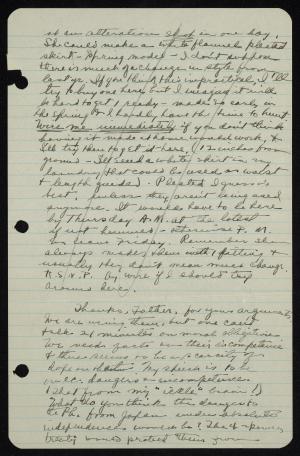 at an alteration shop in one day.
She could make a white flannel pleated
skirt - Spring model - I don't suppose
there is much of a change in style from
last yr. If you think this impractical, I'll
try to buy one here, but I imagine it will
be hard to get 1 ready-made so early in
the Spring & I hardly have the time to hunt.
Wire me immediately if you don't think
having it made at home would work &
I'll try then to get it here. (12 inches from
ground - I'll send a white skirt in my
laundry that could be used as waist
& length guide). - Pleated I guess is
best, unless they aren't being used
anymore. It would have to be here
by Thursday A.M. at the latest
if not hemmed - otherwise P.M.
we leave Friday. Remember she
always makes them with 1 fitting &
usually they don't mean much change.
R.S.V.P. by wire if I should try
around here.
Thanks, Father, for your arguments.
We are using them, but one can't
talk 21 minutes on moral obligations
We need facts on their incompetence
& there seems to be a scarcity of
dope on that. My speech is to be
mil. dangers - incompetence.
(That from my "little" brain!)
What do you think the dangers to
the P.I. from Japan under absolute
independence would be? The 4-power
treaty would protect them from